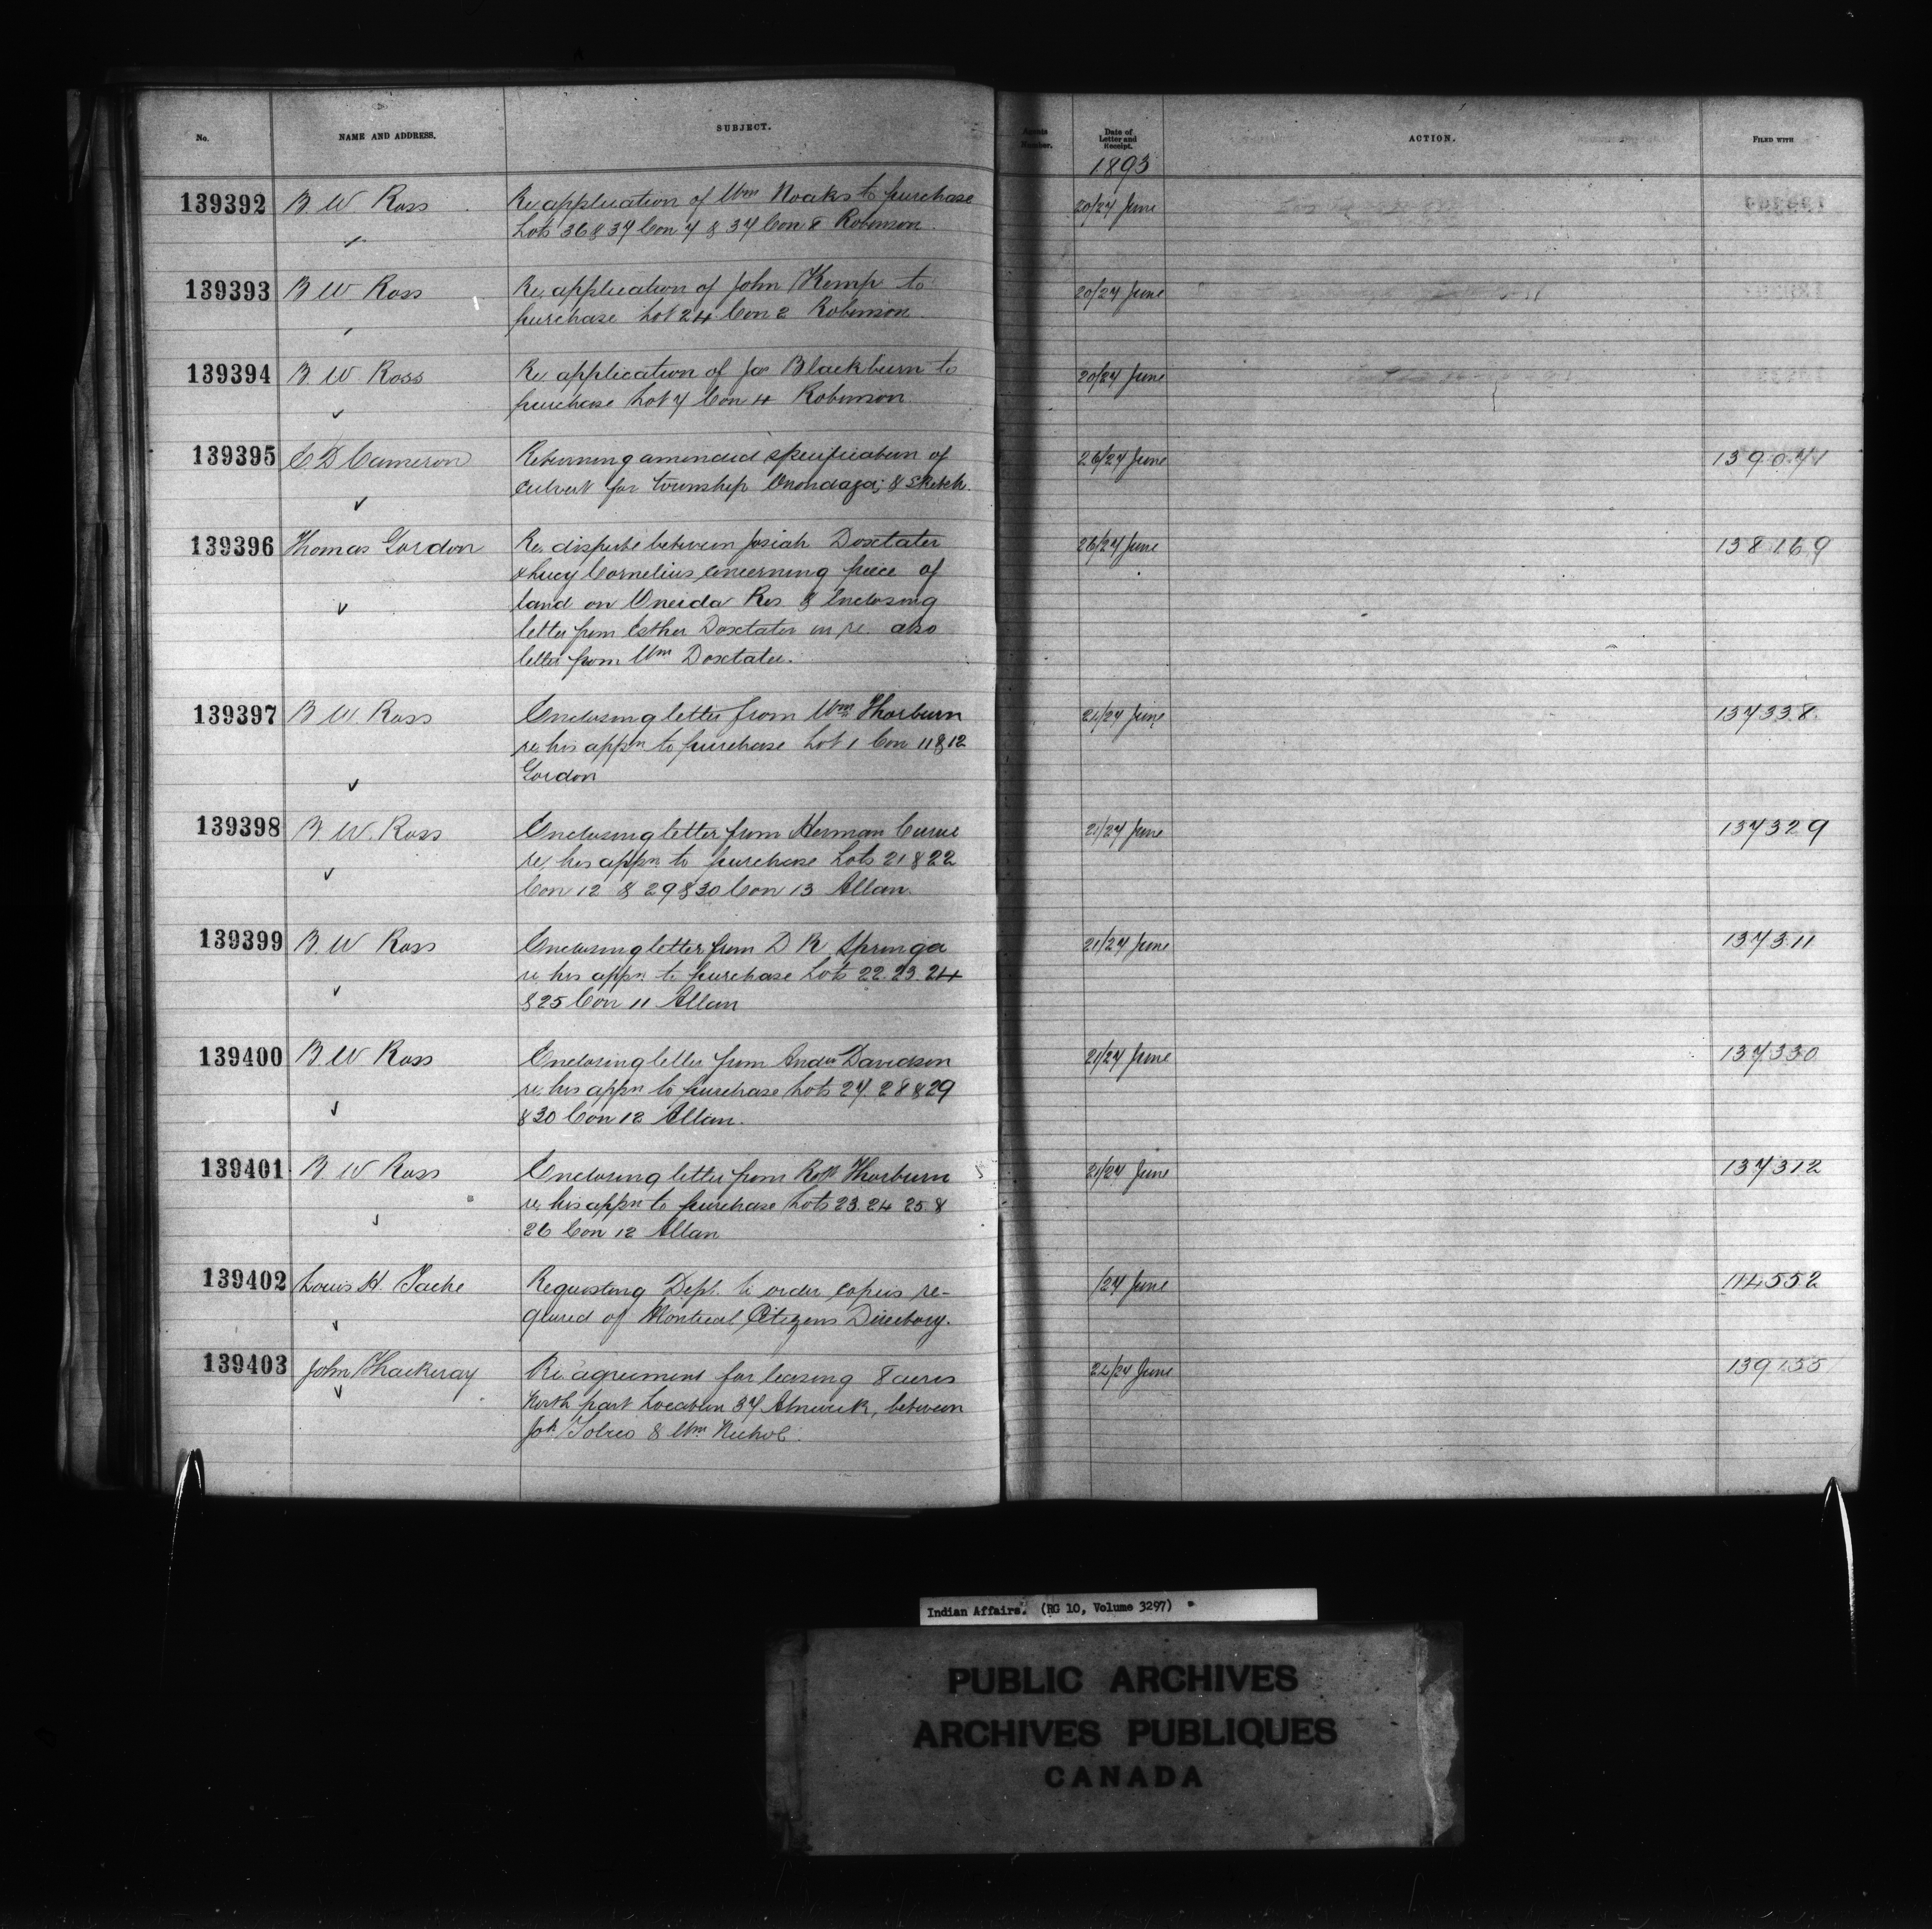 No.
NAME AND ADDRESS.
SUBJECT.
Agents Number.
Date of Letter and Receipt.
ACTION.
FILED WITH
1893
139392 B. W. Ross Re application of Wm Noaks to purchase 20/27 June
Lots 36 & 37 Con 7 & 37 Con 8 Robinson.
139393 B W Ross Re application of John Kemp to 20/27 June
purchase Lot 24. Con 2 Robinson.
139394 B. W. Ross Re application of Jas Blackburn to 20/27 June
purchase Lot 7 Con 4 Robinson.
139395 E D Cameron Returning amended specification of 26/27 June 139.071
Culvert for township Onondaga; & sketch.
139396 Thomas Gordon Re dispute between Josiah Doxtater 26/27 June 138169
& Lucy Cornelius concerning piece of
land on Oneida Res. & Enclosing
letter from Esther Doxtater in re. also
letter from Wm Doxtater.
139397 B W. Ross Enclosing letter from Wm Thorburn 21/27 June 137338.
re his appn to purchase Lot 1 Con 11 & 12
Gordon
139398 B. W. Ross Enclosing letter from Herman Currie 21/27 June 137329
re his appn to purchase Lots 21 & 22
Con 12 & 29 & 30 Con 13 Allan.
139399 B. W Ross Enclosing letter from D R Springer 21/27 June 137311
re his appn. to purchase Lots 22. 23. 24
& 25 Con 11 Allan
139400 B. W Ross Enclosing letter from Andw Davidson 21/27 June 137330
re his appn to purchase Lots 27. 28 & 29
& 30 Con 12 Allan.
139401 B. W Ross Enclosing letter from Robt Thorburn 21/27 June 137312
re his appn to purchase Lots 23. 24 25. &
26 Con 12 Allan
139402 Louis H. Tache Requesting Dept. to order copies re- /27 June 114552
quired of Montreal Citizens Directory.
139403 John Thackeray Re agreement for leasing 8 acres 24/27 June 139155
North part Location 37 Alnwick, between
& Wm. Nichol.
Indian Affairs. (RG 10, Volume 3297)
PUBLIC ARCHIVES
ARCHIVES PUBLIQUES
CANADA